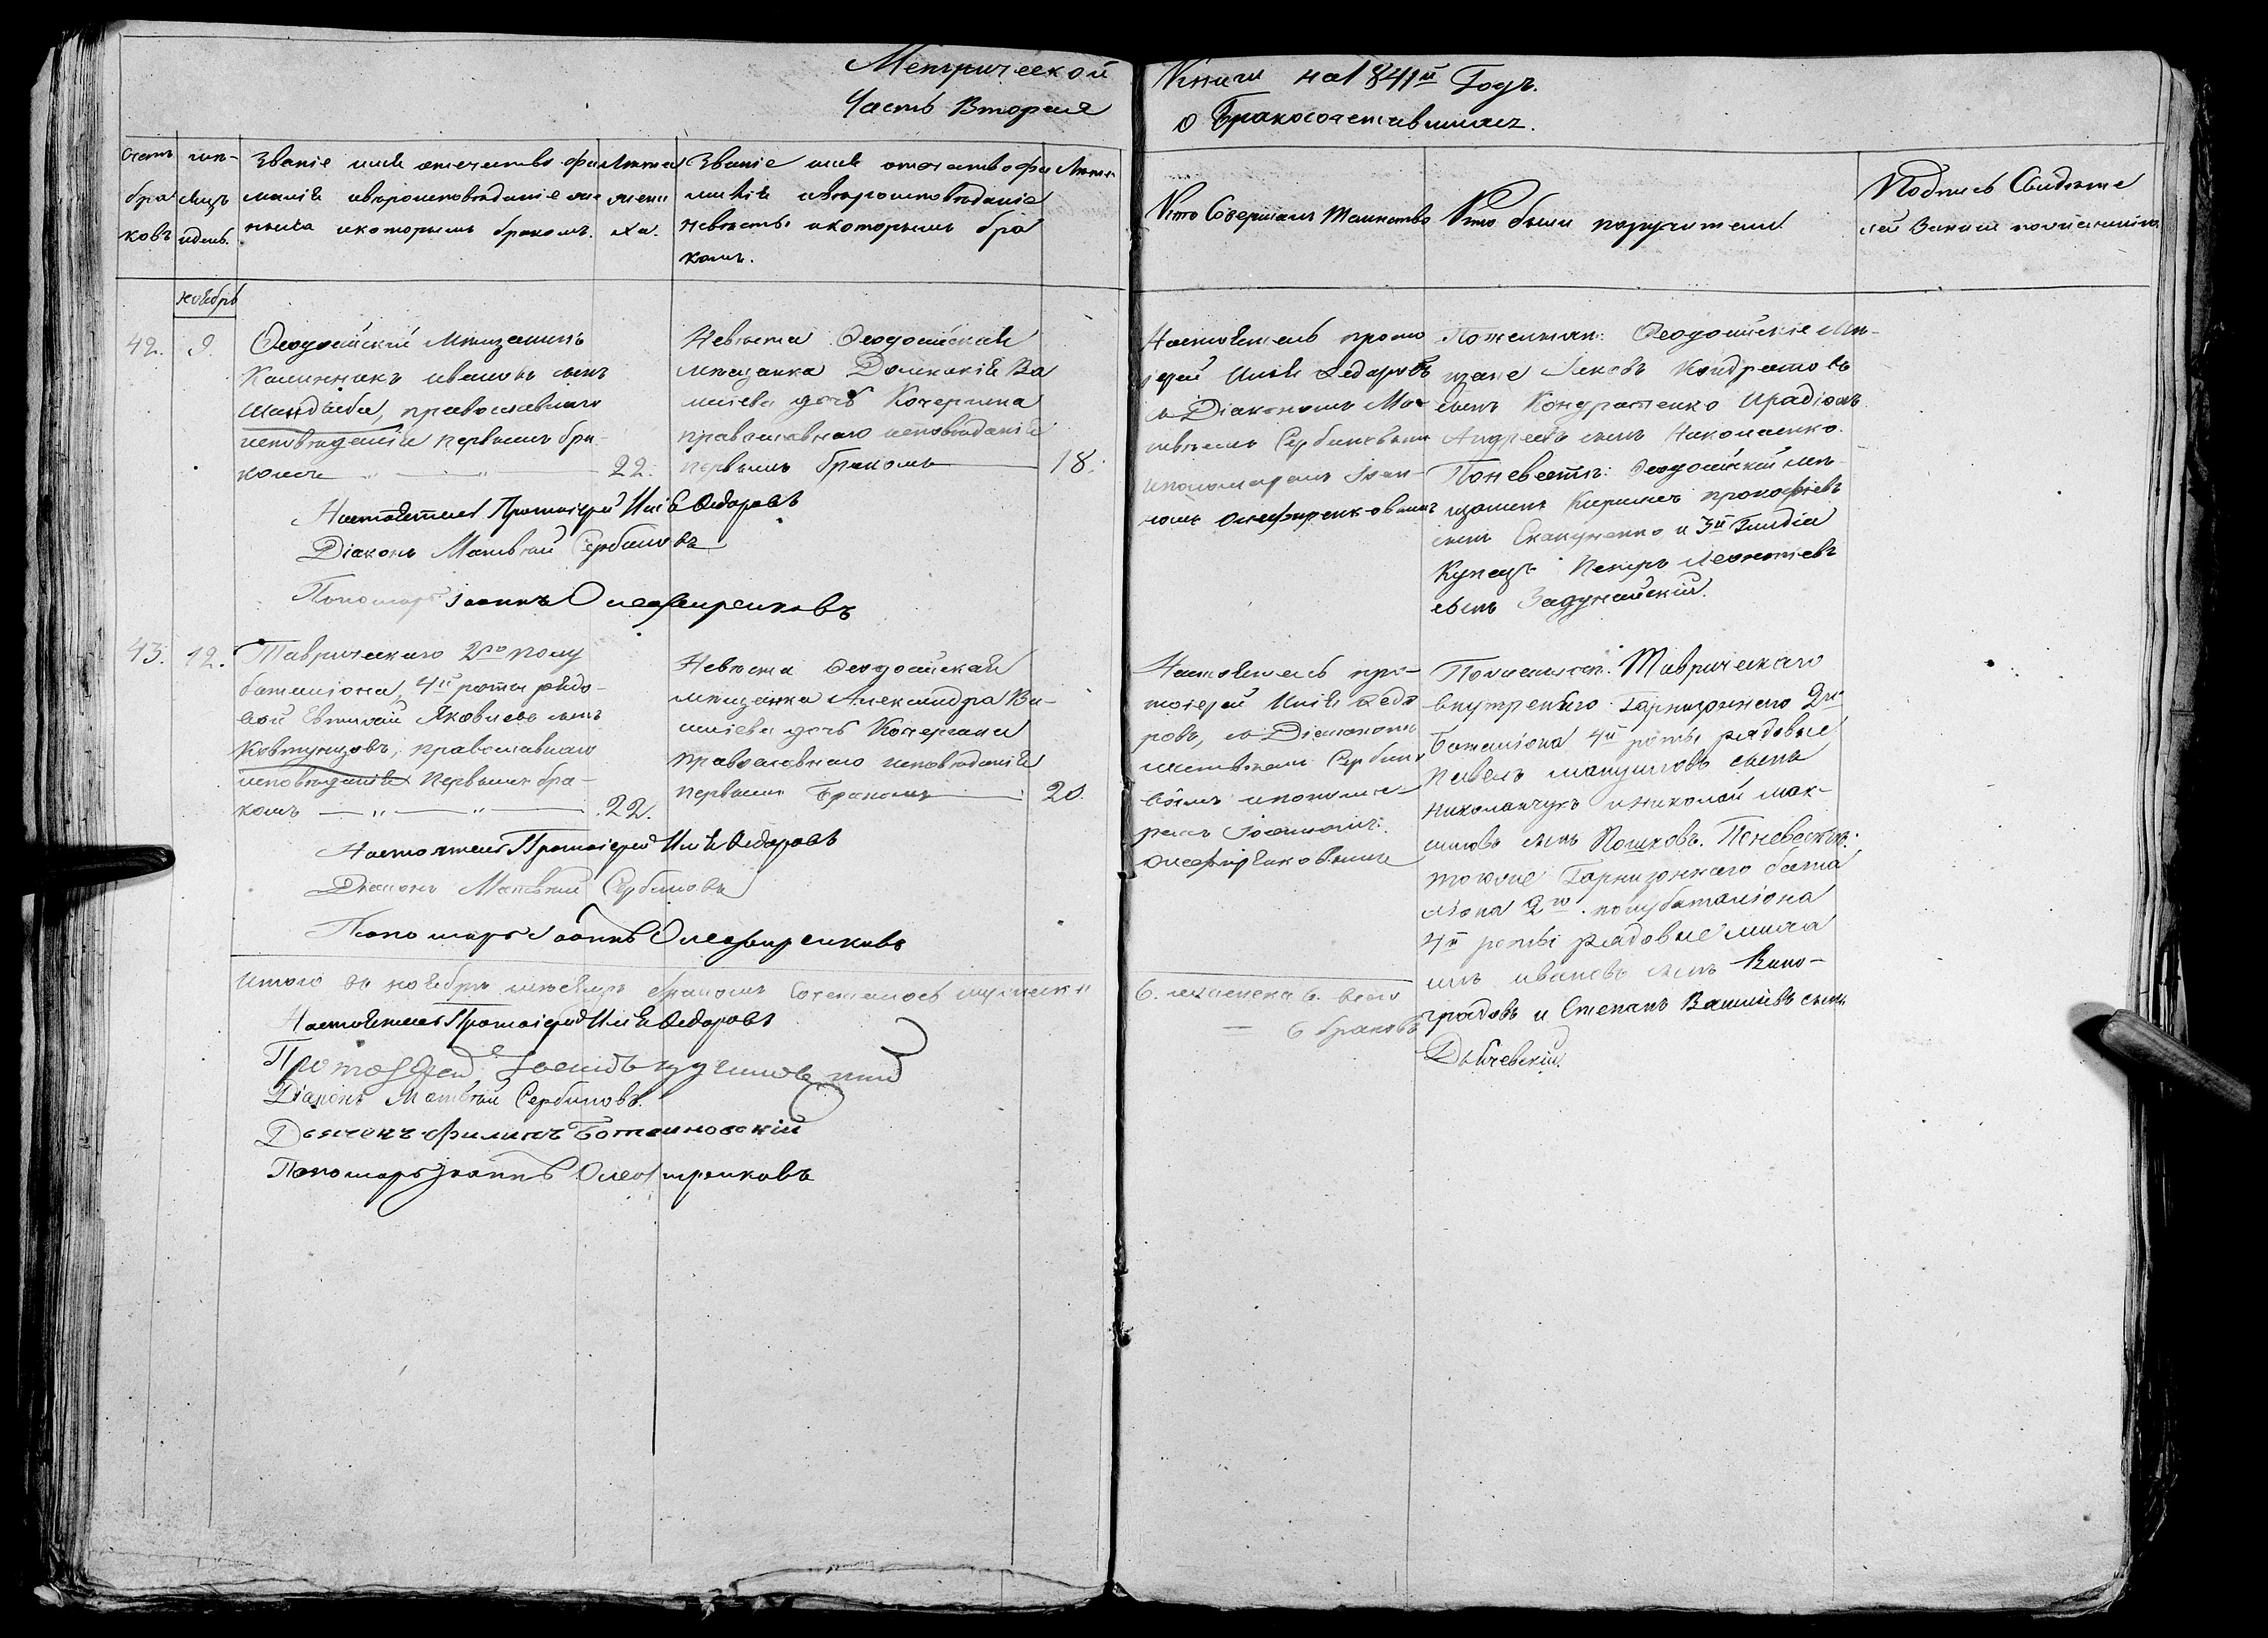 Метрической
Часть Вторая
Книги на 1841й Годъ.
о Бракосочетавшихся.
Счетъ
бра
ковъ
мѣ-
сяцъ
и день.
Званіе имя отечество фа
милія и вѣроисповѣданіе же
ниха и которымъ бракомъ.
Лѣта
жени
ха.
Званіе имя отечество фа
милія и вѣроисповѣданіе
невѣсты и которымъ бра
комъ.
Лѣта
Кто Совершалъ Таинство
Кто были поручители
Подпись Свидѣте
лей Записи по желанію
ноября
42.
9.
Ѳеодосійскій Мѣщанинъ
Калинникъ Ивановъ сынъ
Шандыба, православнаго
исповѣданія первымъ бра-
комъ
22.
Невѣста Ѳеодосійская
мѣщанка Домникія Ва
силіева дочь Кочергина
православнаго исповѣданія
первымъ бракомъ
18.
Настоятель прото
іерей Илія Ѳедоровъ
съ Діакономъ Мат
ѳѣемъ Сербиновымъ
и пономаремъ Іоан
номъ Олефиренковымъ
По женихѣ: Ѳеодосійскіе Мѣ-
щане Яковъ Кондратовъ
сынъ Кондратенко и Радіонъ
Андреевъ сынъ Николаенко.
По невѣстѣ: Ѳеодосійскій мѣ-
щанинъ Кириллъ Прокофіевъ
сынъ Скакуненко и 3й Гильдіи
Купецъ Петръ Леонтіевъ
сынъ Задунайскій.
Настоятель Протоіерей Илія Ѳедоровъ
Діаконъ Матвѣй Сербиновъ
Пономарь Іоаннъ Олефиренковъ
43.
12.
Таврическаго 2го полу
баталіона, 4й роты рядо-
вой Евтихій Яковлевъ сынъ
Ковтунцовъ, православнаго
исповѣданія первымъ бра-
комъ
22.
Невѣста Ѳеодосійская
мѣщанка Александра Ва-
силіева дочь Кочергина
православнаго исповѣданія
первымъ Бракомъ
20.
Настоятель про-
тоіерей Илія Ѳедо
ровъ, съ Діакономъ
Матвѣемъ Сербино
вымъ и понома-
ремъ Іоанномъ
Олефиренковымъ
По женихѣ: Таврическаго
внутренняго Гарнизоннаго 2го
Баталіона 4й роты рядовые
Павелъ Мануиловъ сынъ
Николайчукъ и Николай Мак-
симовъ сынъ Пошковъ. По невѣстѣ:
того же Гарнизоннаго бата
ліона 2го полубаталіона
4й роты рядовые Миха
илъ Ивановъ сынъ Вино-
градовъ и Степанъ Василіевъ сынъ
Дычевскій.
Настоятель Протоіерей Илія Ѳедоровъ
Діаконъ Матвѣй Сербиновъ
Пономарь Іоаннъ Олефиренковъ
Итого въ ноябрѣ мѣсяцѣ бракомъ Сочеталось мужеска
6. женска 6. всего
6 браковъ
Настоятель Протоіерей Илія Ѳедоровъ
Протоіерей
Діаконъ Матвѣй Сербиновъ.
Дьячекъ Филипъ Ботвиновскій
Пономарь Іоаннъ Олефиренковъ